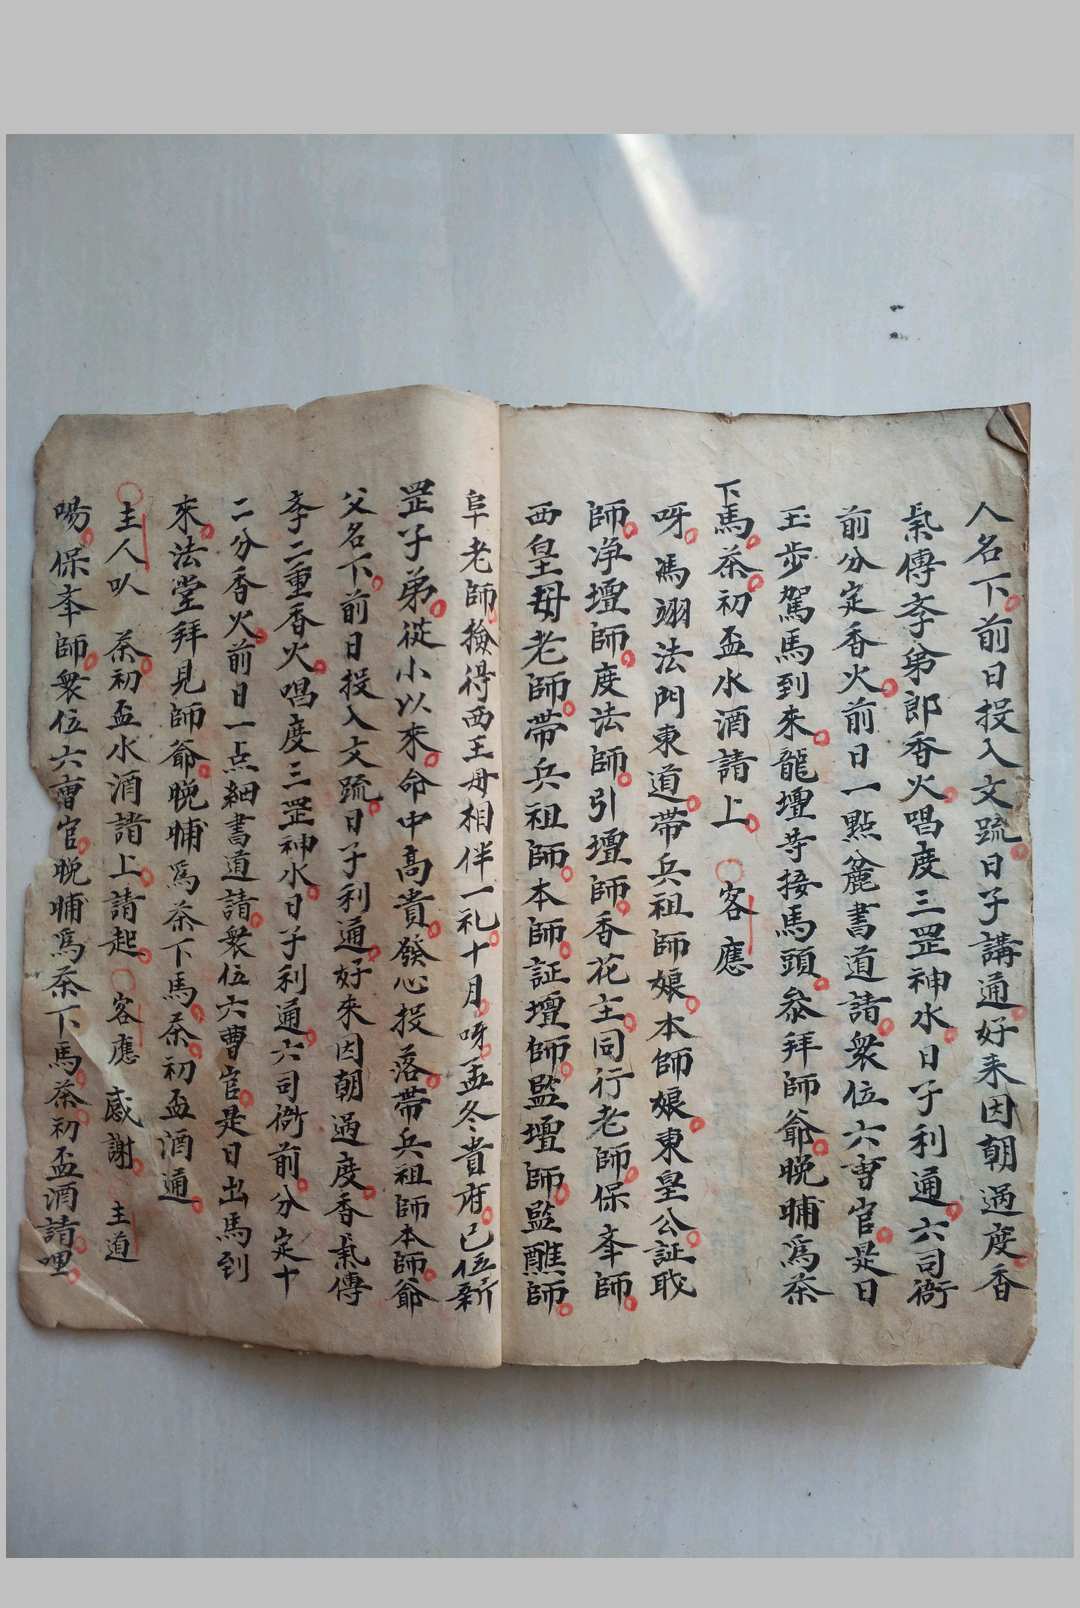 人名下前日投入文疏日子講通好来因朝過度香
氣傳李弟郎香火唱度三罡神水日子利通六司衙
前分定香火前日一點麄書道請衆位六曹官是日
玉步駕馬到來龍壇寺接馬頭叅拜師爺晚晡爲茶
下馬茶初盃水酒請上 客應
呀馮翊法門東道帶兵祖師娘本師娘東皇公証
師净壇師度法師引壇師香花主同行老師保李師
西皇母老師帶兵祖師本師証壇師監壇師監醮師
阜老師撿得西王母相伴一礼十月呀孟冬貴府已伍新
罡子弟從小以來命中高貴發心投落帶兵祖師本師爺
父名下前日投入文疏日子利通好來因朝過度香氣傳
李二重香火唱度三罡神水日子利通六司衙前分定十
二分香火前日一点細書道請衆位六曹官是日出馬到
來法堂拜見師爺晚晡爲茶下馬茶初盃酒通
主人叺 茶初盃水酒請上請起 客應 感謝 主道
喝保李師衆位六曹官晚晡爲茶下馬茶初盃酒請哩